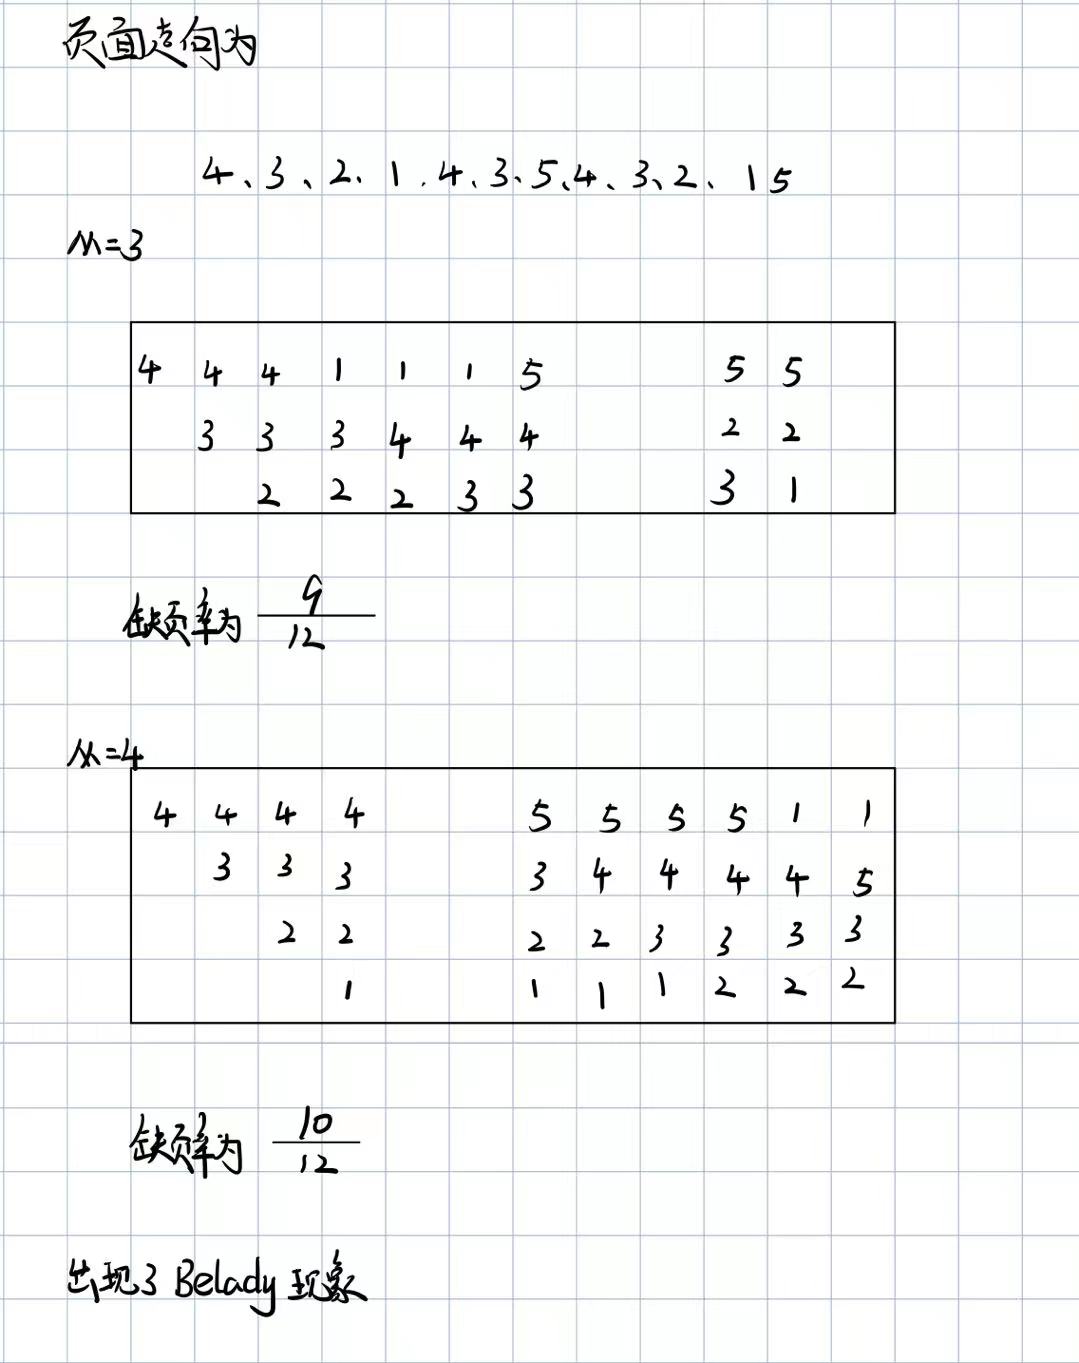 页面走向为
4、3、2、1、4、3、5、4、3、2、1 5
M=3
4 4 4 1 1 1 5 5 5
3 3 3 4 4 4 2 2
2 2 2 3 3 3 1
缺页率为 9/12
M=4
4 4 4 4 5 5 5 5 1 1
3 3 3 3 4 4 4 4 5
2 2 2 2 3 3 3 3
1 1 1 1 2 2 2
缺页率为 10/12
出现了 Belady 现象